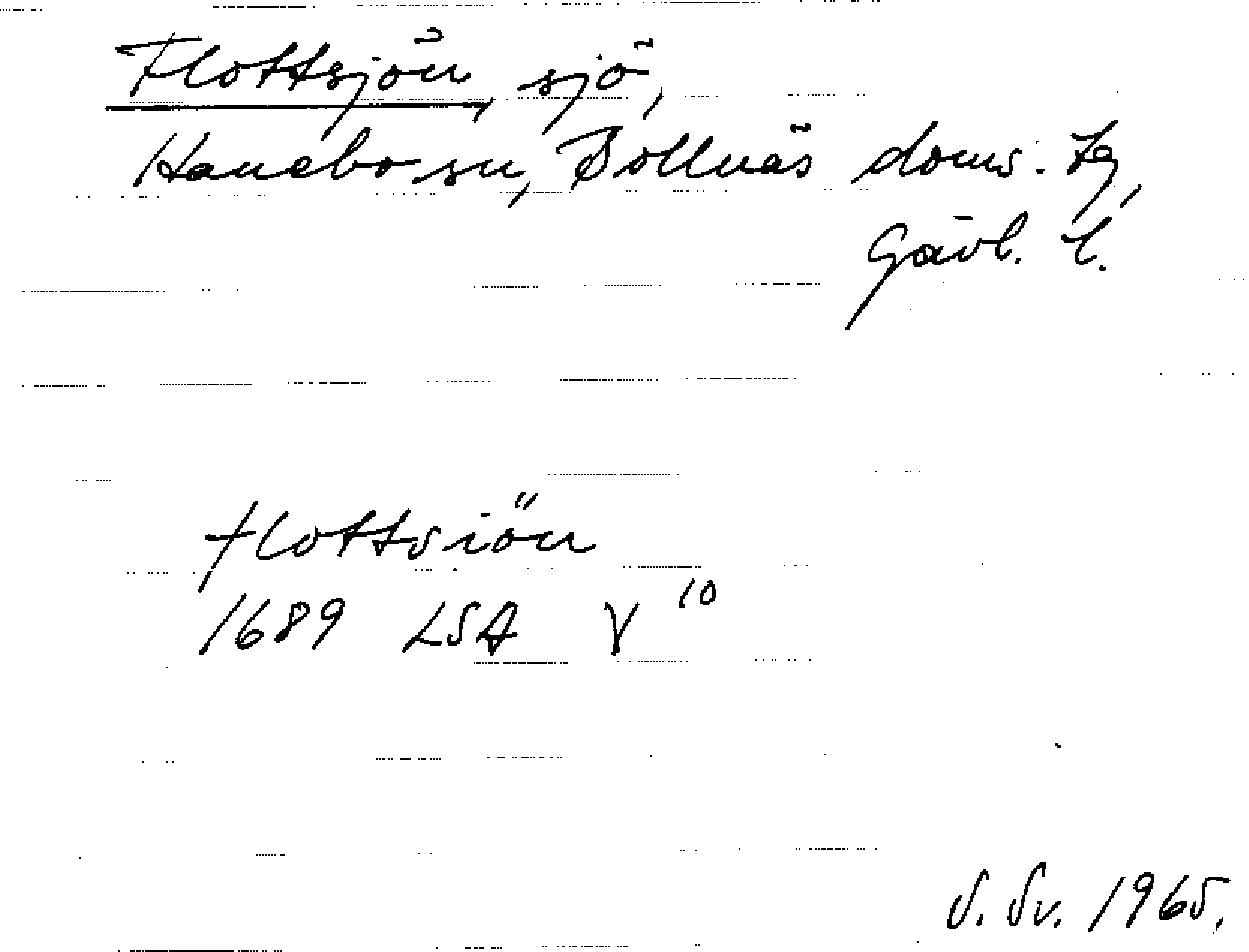 Flottsjön, sjö,
Hanebo sn, Bollnäs doms. tg,
Gävl. l.
Flottsiön
1689 LSA V 10
S. Sv. 1965.